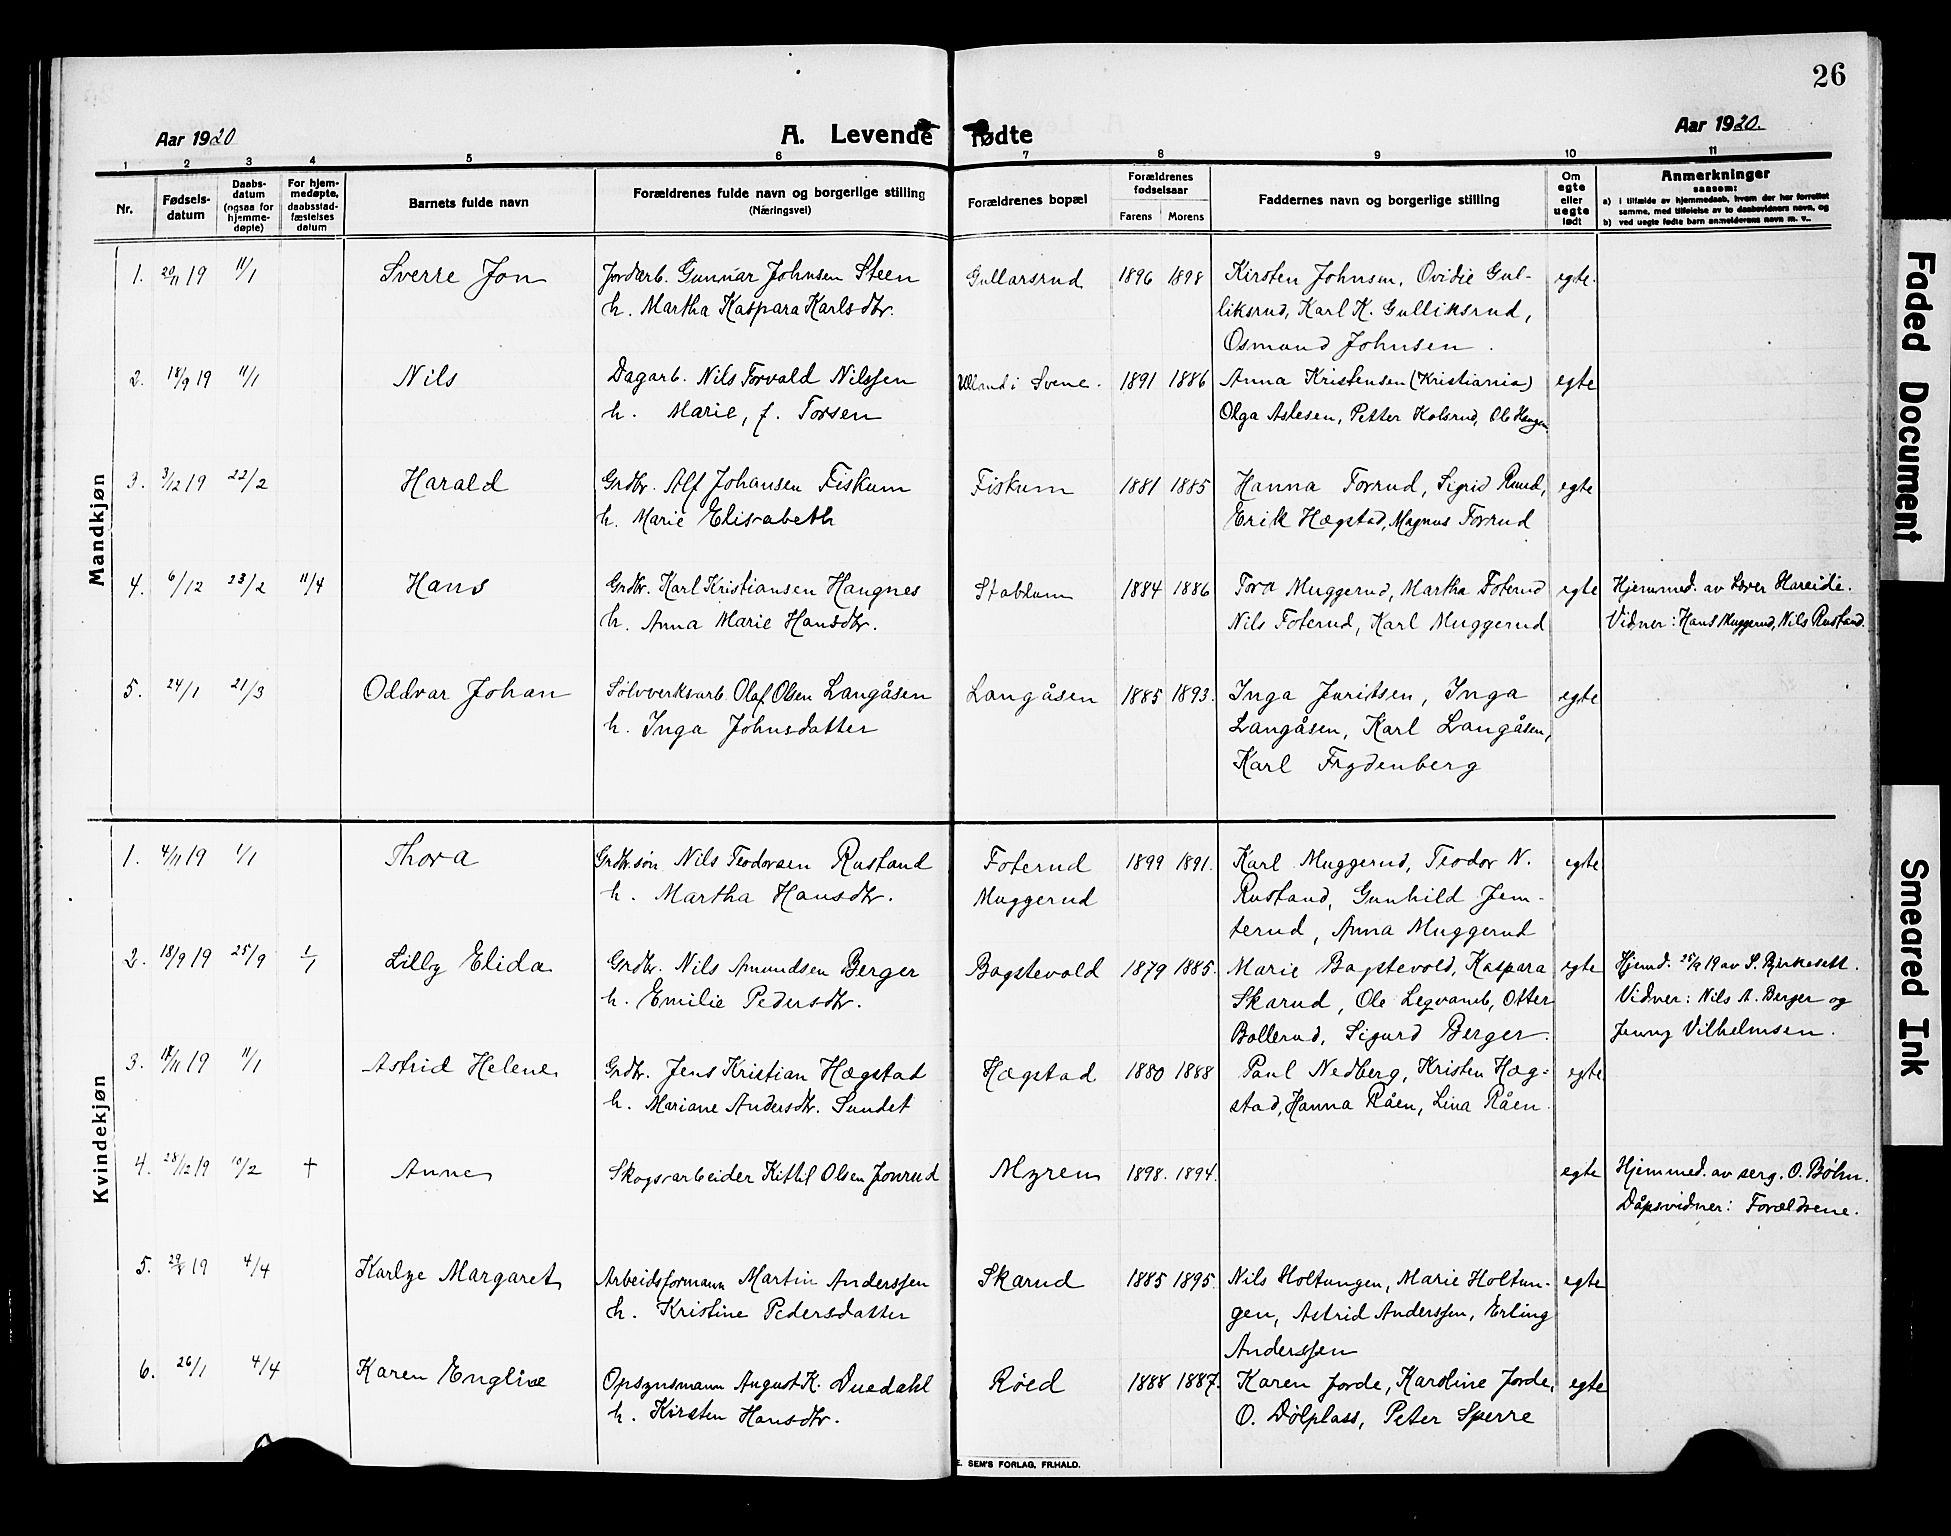 26
Aar 1920 A. Levende fødte Aar 1920.
1 2 3 4 5 6 7 8 9 10 11
Nr. Fødsels-datum Daabs-datum (ogsaa for hjemme-døpte) For hjem-medøpte, daabsstad-fæstelses datum Barnets fulde navn Forældrenes fulde navn og borgerlige stilling (Næringsvei) Forældrenes bopæl Forældrenes fødselsaar Farens Morens Faddernes navn og borgerlige stilling Om egte eller uegte født Anmerkninger
saasom:
a) i tilfælde av hjemmedaab, hvem der har forrettet
samme, med tilføielse av to daabsvidners navn, og
b) ved uegte fødte barn anmelderens navn m. v..
Mandkjøn
1. 20/11 19 11/1 Sverre Jon Jordarb. Gunnar Johnsen Steen Gullarsrud 1896 1898 Kirsten Johnsen, Ovidie Gul- egte.
h. Martha Kaspara Karlsdtr. liksrud, Karl K. Gulliksrud,
Osmund Johnsen.
2. 18/9 19 11/1 Nils Dagarb. Nils Torvald Nilssen i Svene. 1891 1886 Anna Kristensen (Kristiania) egte
h. Marie, f. Torsen Olga Aslesen, Petter Kolsrud, Ole Haugen
3. 3/12 19 22/2 Harald Grdbr. Alf Johansen Fiskum Fiskum 1881 1885 Hanna Forrud, Sigrid Ruud, egte
h. Marie Elisabeth Erik Hægstad, Magnus Forrud
4. 6/12 23/2 11/4 Hans Grdbr. Karl Kristiansen Hangnes Stablum 1884 1886 Tora Muggerud, Martha Foterud egte Hjemmed. av Lærer Hareide.
h. Anna Marie Hansdtr. Nils Foterud, Karl Muggerud Vidner: Hans Muggerud, Nils Rustand.
5. 24/1 21/3 Oddvar Johan Sølvverksarb. Olaf Olsen Langåsen Langåsen 1885 1893. Inga Juritsen, Inga egte
h. Inga Johnsdatter Langåsen, Karl Langåsen,
Karl Frydenberg
Kvindekjøn
1. 4/11 19 1/1 Thora Grdbr.søn Nils Teodorsen Rustand Foterud 1899 1891. Karl Muggerud, Teodor N. egte
h. Martha Hansdtr. Muggerud Rustand, Gunhild Jem-
terud, Anna Muggerud
2. 18/9 19 25/9 1/1 Lilly Elida Grdbr. Nils Amundsen Berger Bagstevold 1879 1885. Marie Bagstevold, Kaspara egte Hjemd. 25/9 19 av S. Birkesett.
h. Emilie Pedersdtr. Skarud, Ole Legvamb, Otter Vidner: Nils A. Berger og
Bollerud, Sigurd Berger. Jenny Vilhelmsen.
3. 11/11 19 11/1 Astrid Helene Grdbr. Jens Kristian Hægstad Hægstad 1880 1888 Paul Nedberg, Kristen Hæg- egte.
h. Mariane Andersdtr. Sundet stad, Hanna Råen, Lina Råen.
4. 28/12 19 10/2 † Anne Skogsarbeider Kittil Olsen Jonrud Myren 1898. 1894. egte Hjemmed. av serg. O. Bøhn.
Dåpsvidner: Forældrene.
5. 29/8 19 4/4 Karlye Margaret Arbeidsformann Martin Anderssen Skarud 1885 1895. Nils Holtungen, Marie Holtun- egte
h. Kristine Pedersdatter gen, Astrid Anderssen, Erling
Anderssen
6. 26/1 4/4 Karen Engline Opsynsmann August K. Duedahl Røed 1888 1887. Karen Jorde, Karoline Jorde, egte
h. Kirsten Hansdtr. O. Dølplass, Peter Sperre
E. SEM'S FORLAG, FR.HALD.
Faded Document
Smeared Ink